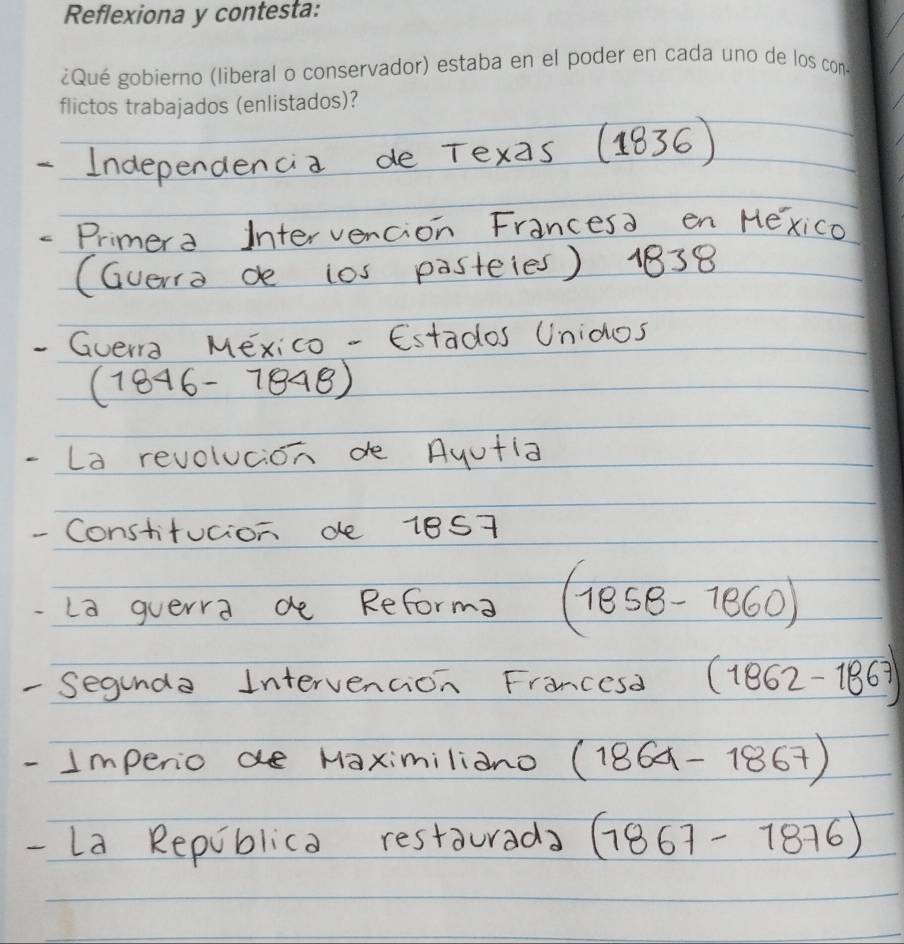 Reflexiona y contesta:
¿Qué gobierno (liberal o conservador) estaba en el poder en cada uno de los con-
flictos trabajados (enlistados)?
- Independencia de Texas (1836)
- Primera Intervención Francesa en México
(Guerra de los pasteles) 1838
- Guerra México - Estados Unidos
(1846 - 1848)
- La revolución de Ayutla
- Constitución de 1857
- La guerra de Reforma (1858 - 1860)
- Segunda Intervención Francesa (1862 - 1867)
- Imperio de Maximiliano (1864 - 1867)
- La República restaurada (1867 - 1876)